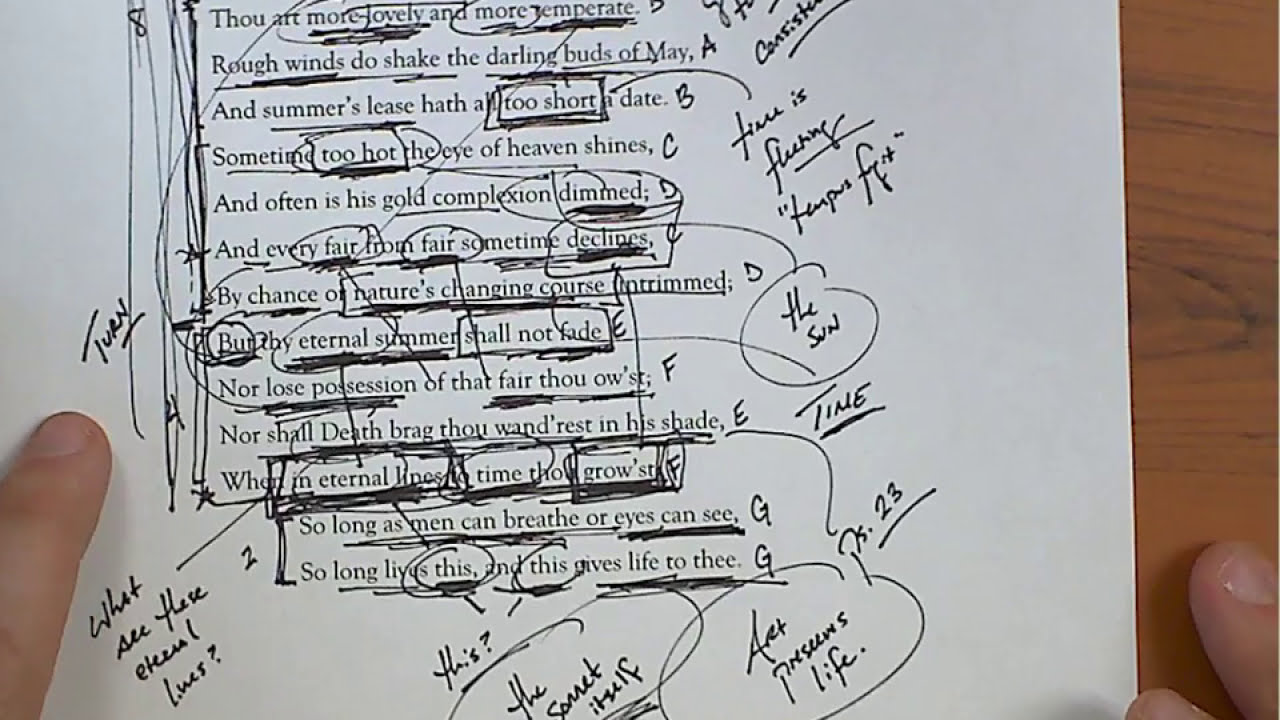 Thou art more lovely and more temperate. B
Rough winds do shake the darling buds of May, A
Consistent
And summer's lease hath all too short a date. B
time is
fleeting
"tempus fugit"
Sometime too hot the eye of heaven shines, C
And often is his gold complexion dimmed; D
And every fair from fair sometime declines, C
By chance or nature's changing course untrimmed; D
the
SUN
TURN
But thy eternal summer shall not fade E
Nor lose possession of that fair thou ow'st; F
TIME
Nor shall Death brag thou wand'rest in his shade, E
When in eternal lines to time thou grow'st. F
Ps. 23
4
So long as men can breathe or eyes can see, G
2
So long lives this, and this gives life to thee. G
What
are these
eternal
lines?
this?
the
sonnet
itself
Art
preserves
life.
8